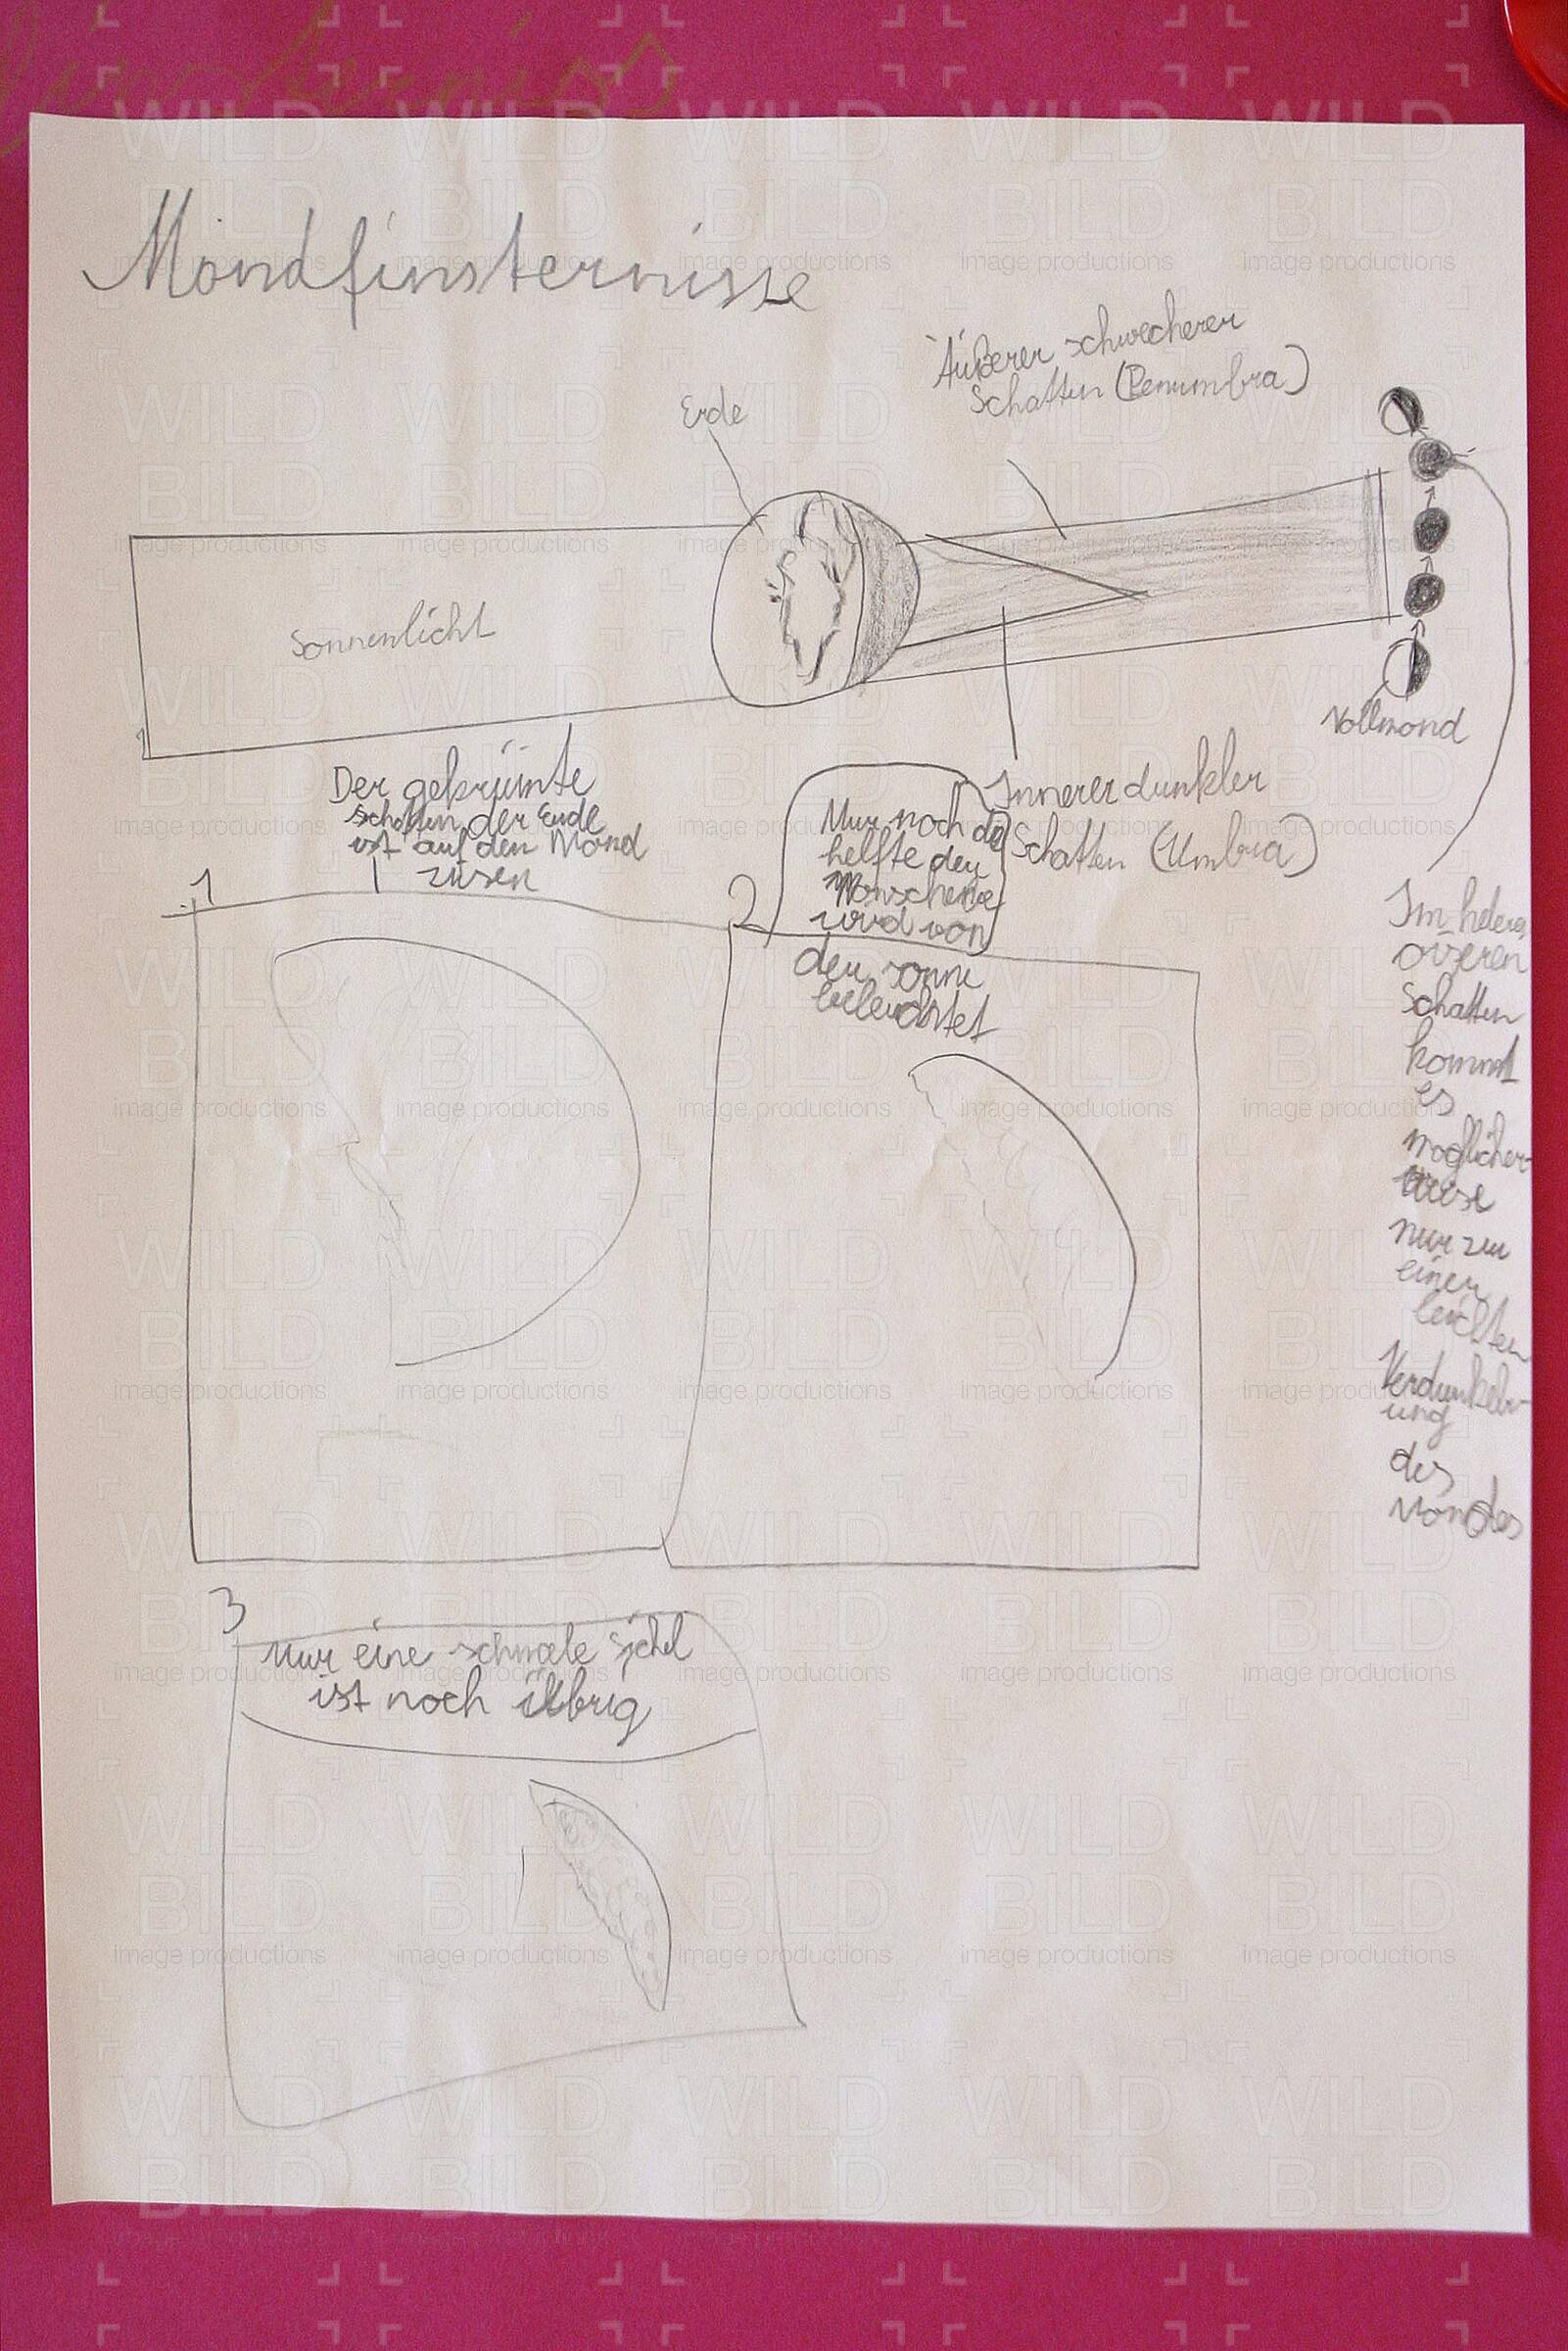 Mondfinsternisse
Äußerer schwecherer
Schatten (Penumbra)
Erde
Sonnenlicht
Vollmond
Innerer dunkler
Schatten (Umbra)
Der gekrümte
schatten der Erde
ist auf den Mond
1
2
Nur noch die
helfte der
wird von
der sonne
beleuchtet
Im
Schatten
kommt
es
moglicher
weise
nur zu
einer
leichten
ung
des
Mondes
3
Nur eine schmale Sichel
ist noch übrig
WILD
BILD
image productions